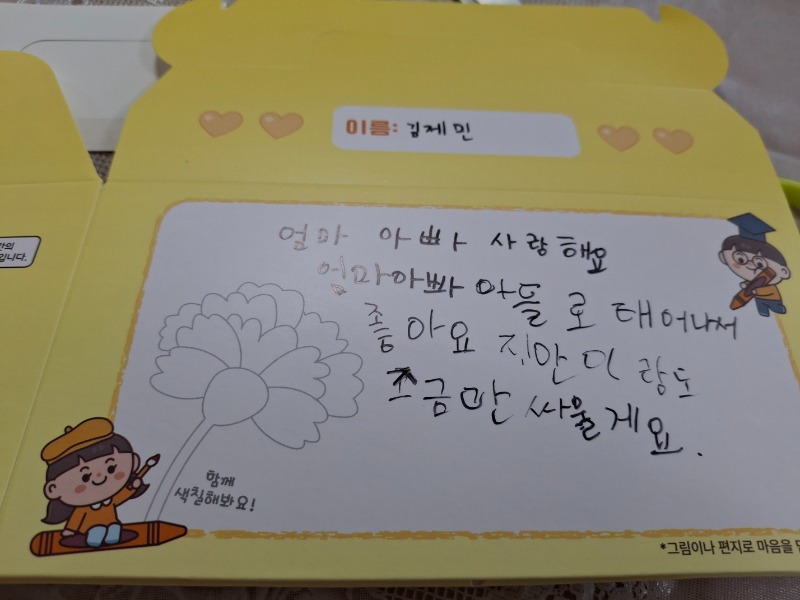 이름: 김제민
엄마 아빠 사랑해요
엄마아빠 아들로 태어나서
좋아요 지만이랑도
조금만 싸울게요.
함께
색칠해봐요!
입니다.
*그림이나 편지로 마음을